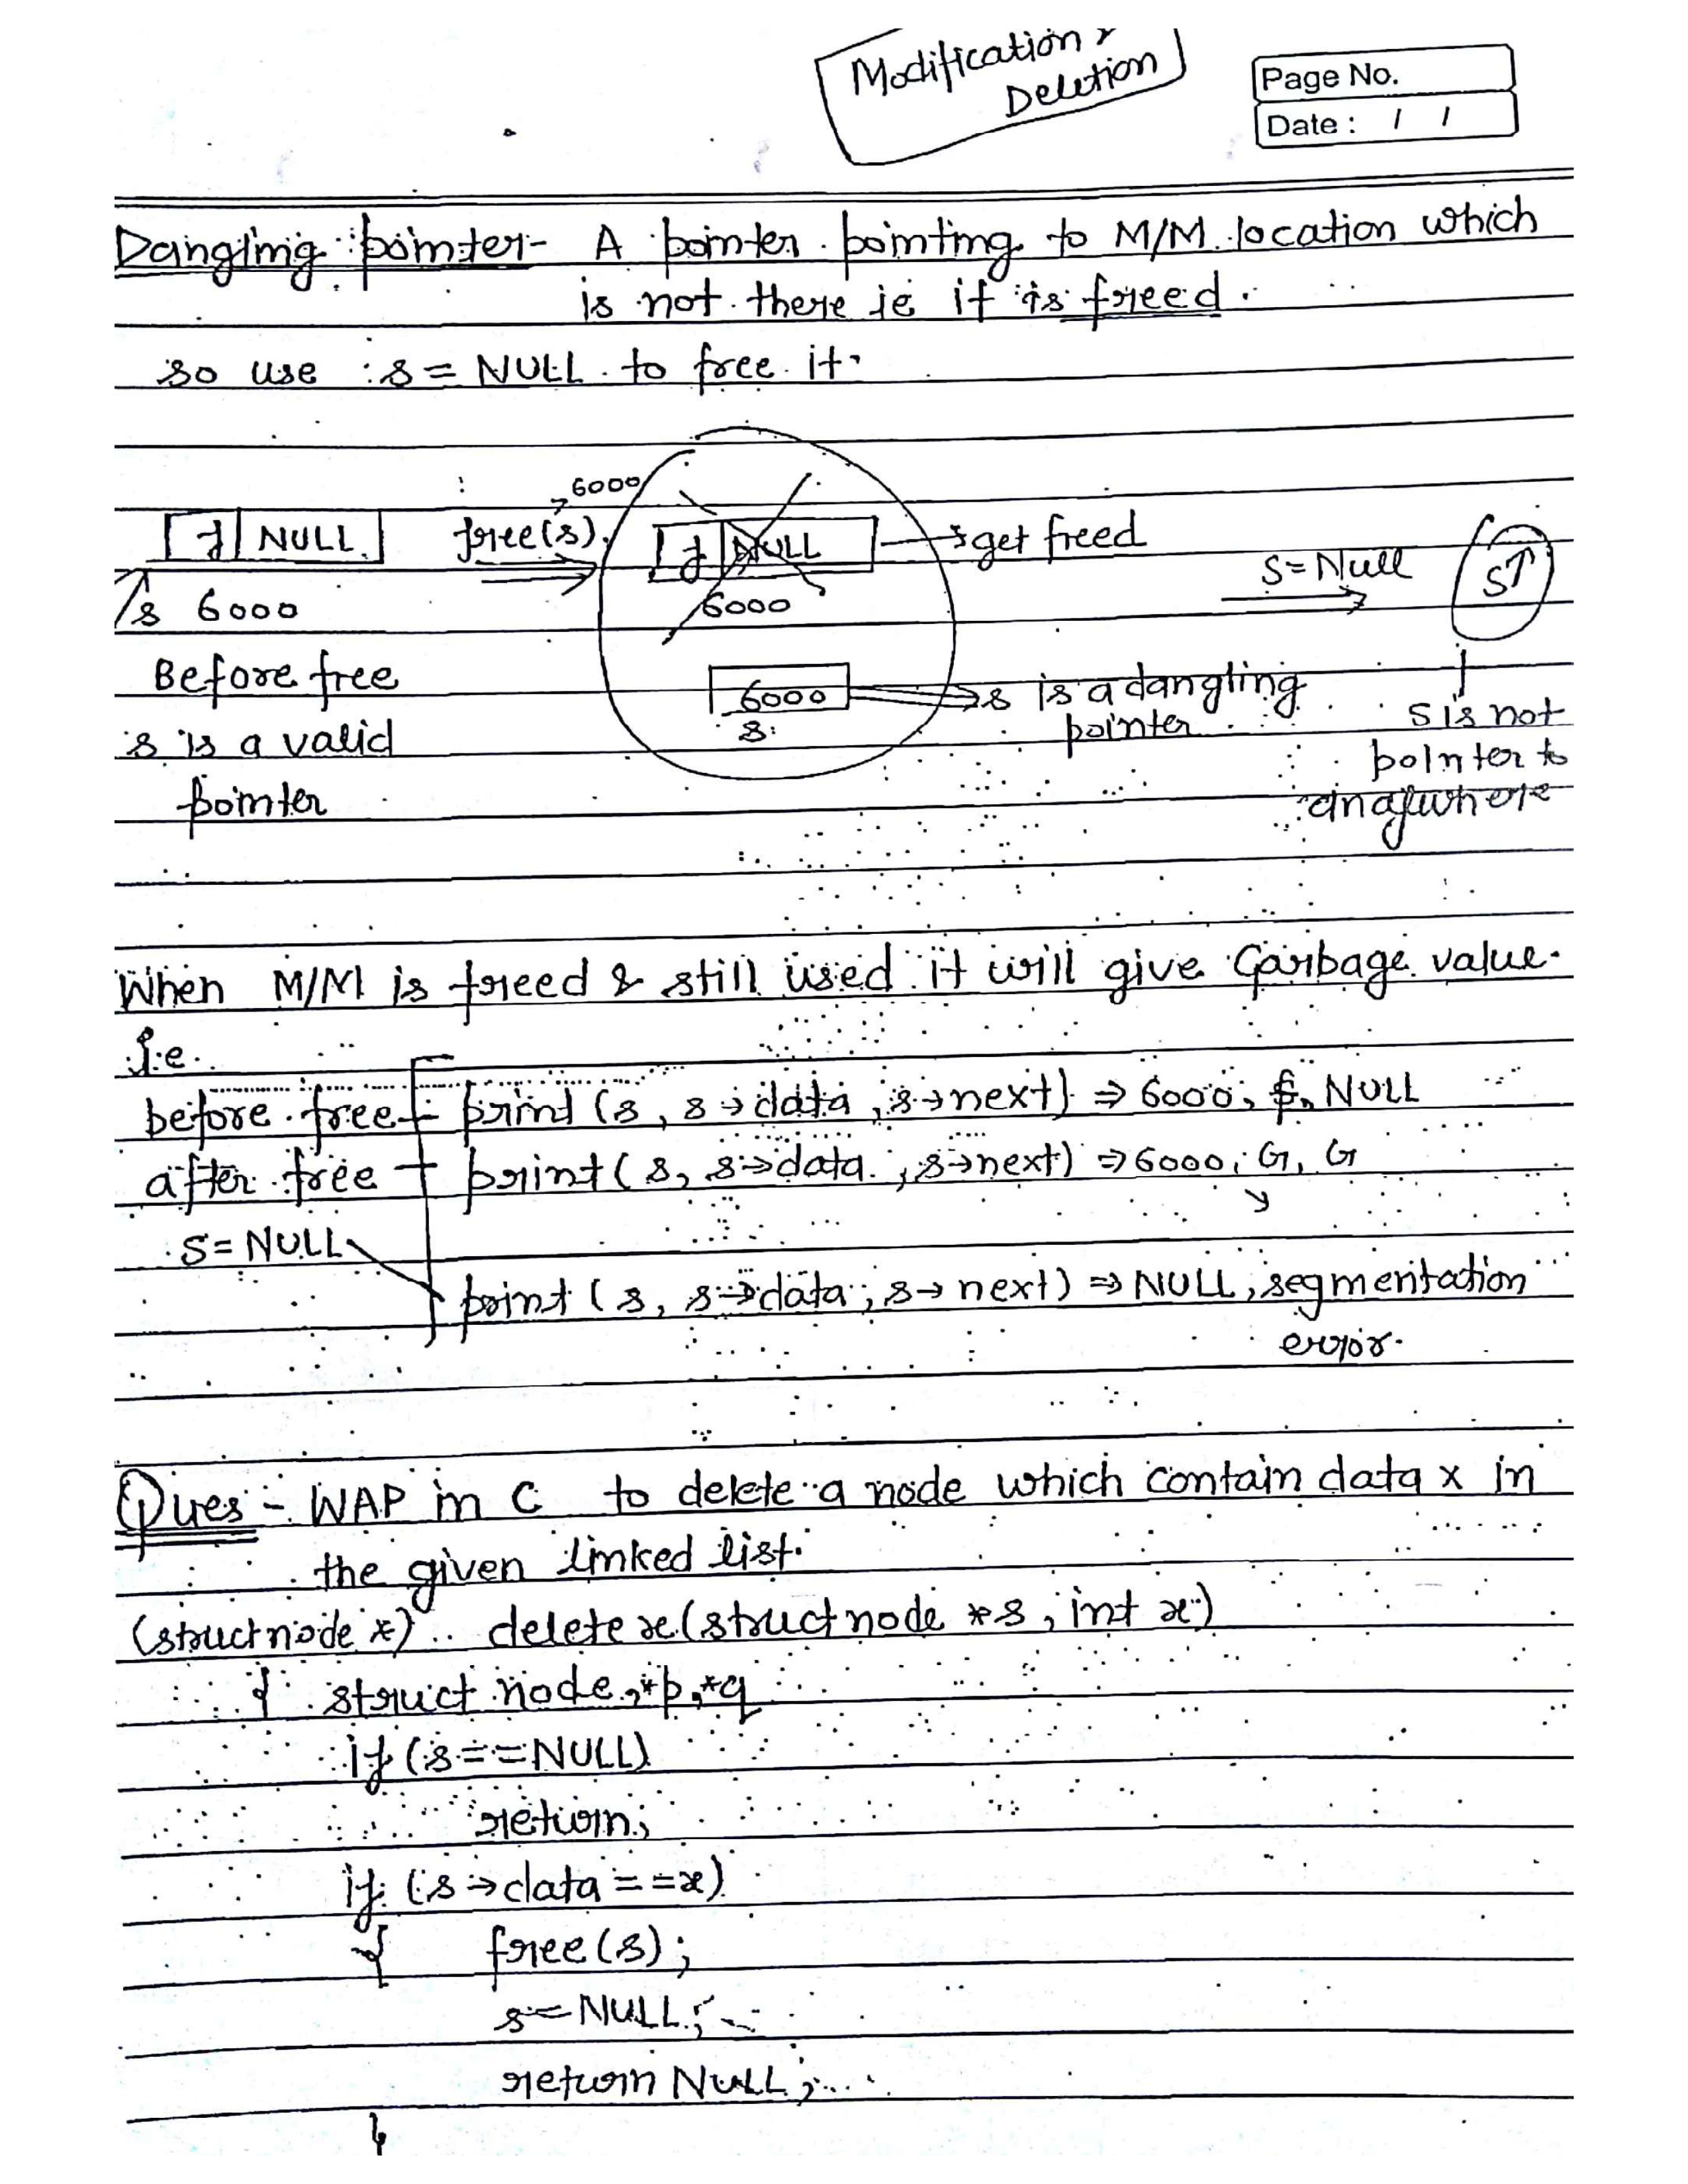 Modification &
Deletion
Page No.
Date : / /
Dangling pointer- A pointer pointing to M/M location which
is not there ie it is freed.
so use s = NULL to free it.
6000
f NULL free(s) f NULL → get freed
S = Null S↑
s 6000 6000
Before free
6000 s is a dangling
s is a valid s pointer
s is not
pointer to
pointer anywhere
When M/M is freed & still used it will give Garbage value.
I.e.
before free print (s, s→data, s→next) ⇒ 6000, f, NULL
after free print (s, s→data, s→next) ⇒ 6000, G, G
S = NULL
print (s, s→data, s→next) ⇒ NULL, segmentation
error.
Ques :- WAP in C to delete a node which contain data x in
the given linked list.
(struct node *) delete x (struct node *s, int x)
{ struct node *p, *q
if (s == NULL)
return;
if (s→data == x)
{ free(s);
s = NULL;
return NULL;
}